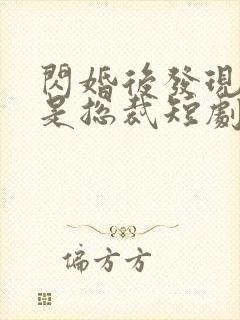 閃婚後發現
是總裁短劇
偏方方